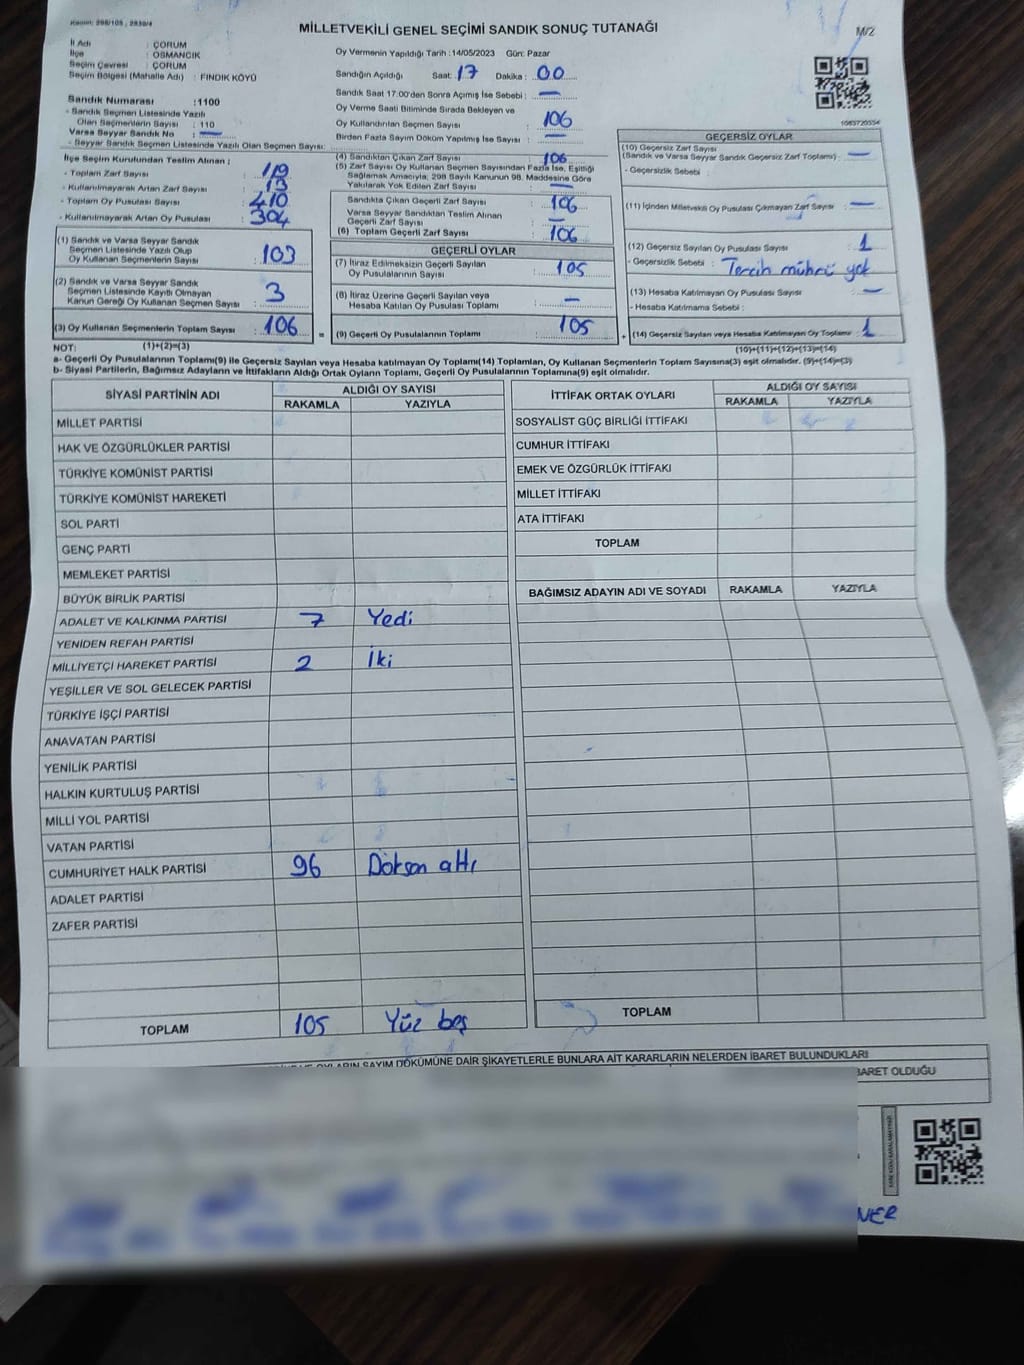 MİLLETVEKİLİ GENEL SEÇİMİ SANDIK SONUÇ TUTANAĞI
M/2
İl Adı : ÇORUM
İlçe : OSMANCIK
Seçim Çevresi : ÇORUM
Seçim Bölgesi (Mahalle Adı) : FINDIK KÖYÜ
Oy Vermenin Yapıldığı Tarih : 14/05/2023 Gün: Pazar
Sandığın Açıldığı Saat: 17 Dakika : 00
Sandık Saat 17.00'den Sonra Açılmış İse Sebebi : —
Oy Verme Saati Bitiminde Sırada Bekleyen ve
Oy Kullandırılan Seçmen Sayısı : 106
Birden Fazla Sayım Döküm Yapılmış İse Sayısı : —
Sandık Numarası : 1100
- Sandık Seçmen Listesinde Yazılı
Olan Seçmenlerin Sayısı : 110
Varsa Seyyar Sandık No : —
- Seyyar Sandık Seçmen Listesinde Yazılı Olan Seçmen Sayısı:
İlçe Seçim Kurulundan Teslim Alınan ;
- Toplam Zarf Sayısı : 119
- Kullanılmayarak Artan Zarf Sayısı : 13
- Toplam Oy Pusulası Sayısı : 410
- Kullanılmayarak Artan Oy Pusulası : 304
(1) Sandık ve Varsa Seyyar Sandık
Seçmen Listesinde Yazılı Olup
Oy Kullanan Seçmenlerin Sayısı : 103
(2) Sandık ve Varsa Seyyar Sandık
Seçmen Listesinde Kayıtlı Olmayan
Kanun Gereği Oy Kullanan Seçmen Sayısı : 3
(3) Oy Kullanan Seçmenlerin Toplam Sayısı : 106
(4) Sandıktan Çıkan Zarf Sayısı : 106
(5) Zarf Sayısı Oy Kullanan Seçmen Sayısından Fazla İse, Eşitliği
Sağlamak Amacıyla, 298 Sayılı Kanunun 98. Maddesine Göre
Yakılarak Yok Edilen Zarf Sayısı : —
Sandıkta Çıkan Geçerli Zarf Sayısı : 106
Varsa Seyyar Sandıktan Teslim Alınan
Geçerli Zarf Sayısı : —
(6) Toplam Geçerli Zarf Sayısı : 106
GEÇERLİ OYLAR
(7) İtiraz Edilmeksizin Geçerli Sayılan
Oy Pusulalarının Sayısı : 105
(8) İtiraz Üzerine Geçerli Sayılan veya
Hesaba Katılan Oy Pusulası Sayısı : —
= (9) Geçerli Oy Pusulalarının Toplamı : 105
1083720554
GEÇERSİZ OYLAR
(10) Geçersiz Zarf Sayısı
(Sandık ve Varsa Seyyar Sandık Geçersiz Zarf Toplamı) : —
- Geçersizlik Sebebi :
(11) İçinden Milletvekili Oy Pusulası Çıkmayan Zarf Sayısı : —
(12) Geçersiz Sayılan Oy Pusulası Sayısı : 1
- Geçersizlik Sebebi : Tercih mührü yok
(13) Hesaba Katılmayan Oy Pusulası Sayısı : —
- Hesaba Katılmama Sebebi :
+ (14) Geçersiz Sayılan veya Hesaba Katılmayan Oy Toplamı : 1
NOT: (1)+(2)=(3) (10)+(11)+(12)+(13)=(14)
a- Geçerli Oy Pusulalarının Toplamı(9) ile Geçersiz Sayılan veya Hesaba katılmayan Oy Toplamı(14) Toplamları, Oy Kullanan Seçmenlerin Toplam Sayısına(3) eşit olmalıdır. (9)+(14)=(3)
b- Siyasi Partilerin, Bağımsız Adayların ve İttifakların Aldığı Ortak Oyların Toplamı, Geçerli Oy Pusulalarının Toplamına(9) eşit olmalıdır.
SİYASİ PARTİNİN ADI ALDIĞI OY SAYISI
RAKAMLA YAZIYLA
MİLLET PARTİSİ
HAK VE ÖZGÜRLÜKLER PARTİSİ
TÜRKİYE KOMÜNİST PARTİSİ
TÜRKİYE KOMÜNİST HAREKETİ
SOL PARTİ
GENÇ PARTİ
MEMLEKET PARTİSİ
BÜYÜK BİRLİK PARTİSİ
ADALET VE KALKINMA PARTİSİ 7 Yedi
YENİDEN REFAH PARTİSİ
MİLLİYETÇİ HAREKET PARTİSİ 2 İki
YEŞİLLER VE SOL GELECEK PARTİSİ
TÜRKİYE İŞÇİ PARTİSİ
ANAVATAN PARTİSİ
YENİLİK PARTİSİ
HALKIN KURTULUŞ PARTİSİ
MİLLİ YOL PARTİSİ
VATAN PARTİSİ
CUMHURİYET HALK PARTİSİ 96 Doksan altı
ADALET PARTİSİ
ZAFER PARTİSİ
TOPLAM 105 Yüz beş
İTTİFAK ORTAK OYLARI ALDIĞI OY SAYISI
RAKAMLA YAZIYLA
SOSYALİST GÜÇ BİRLİĞİ İTTİFAKI
CUMHUR İTTİFAKI
EMEK VE ÖZGÜRLÜK İTTİFAKI
MİLLET İTTİFAKI
ATA İTTİFAKI
TOPLAM
BAĞIMSIZ ADAYIN ADI VE SOYADI RAKAMLA YAZIYLA
TOPLAM
OYLARIN SAYIM DÖKÜMÜNE DAİR ŞİKAYETLERLE BUNLARA AİT KARARLARIN NELERDEN İBARET BULUNDUKLARI
BARET OLDUĞU
NER